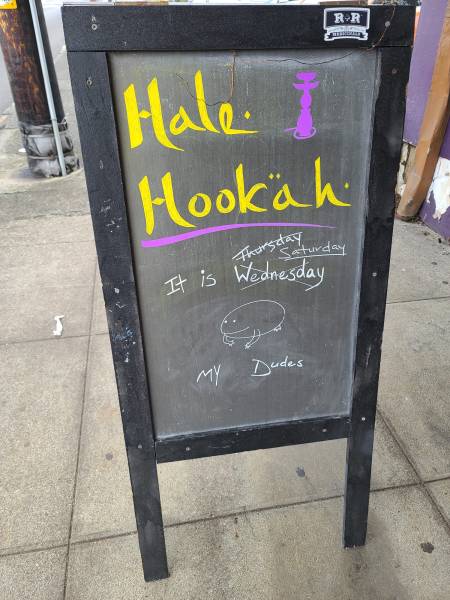 R R
Hale
Hookäh
Thursday
Saturday
It is Wednesday
My Dudes